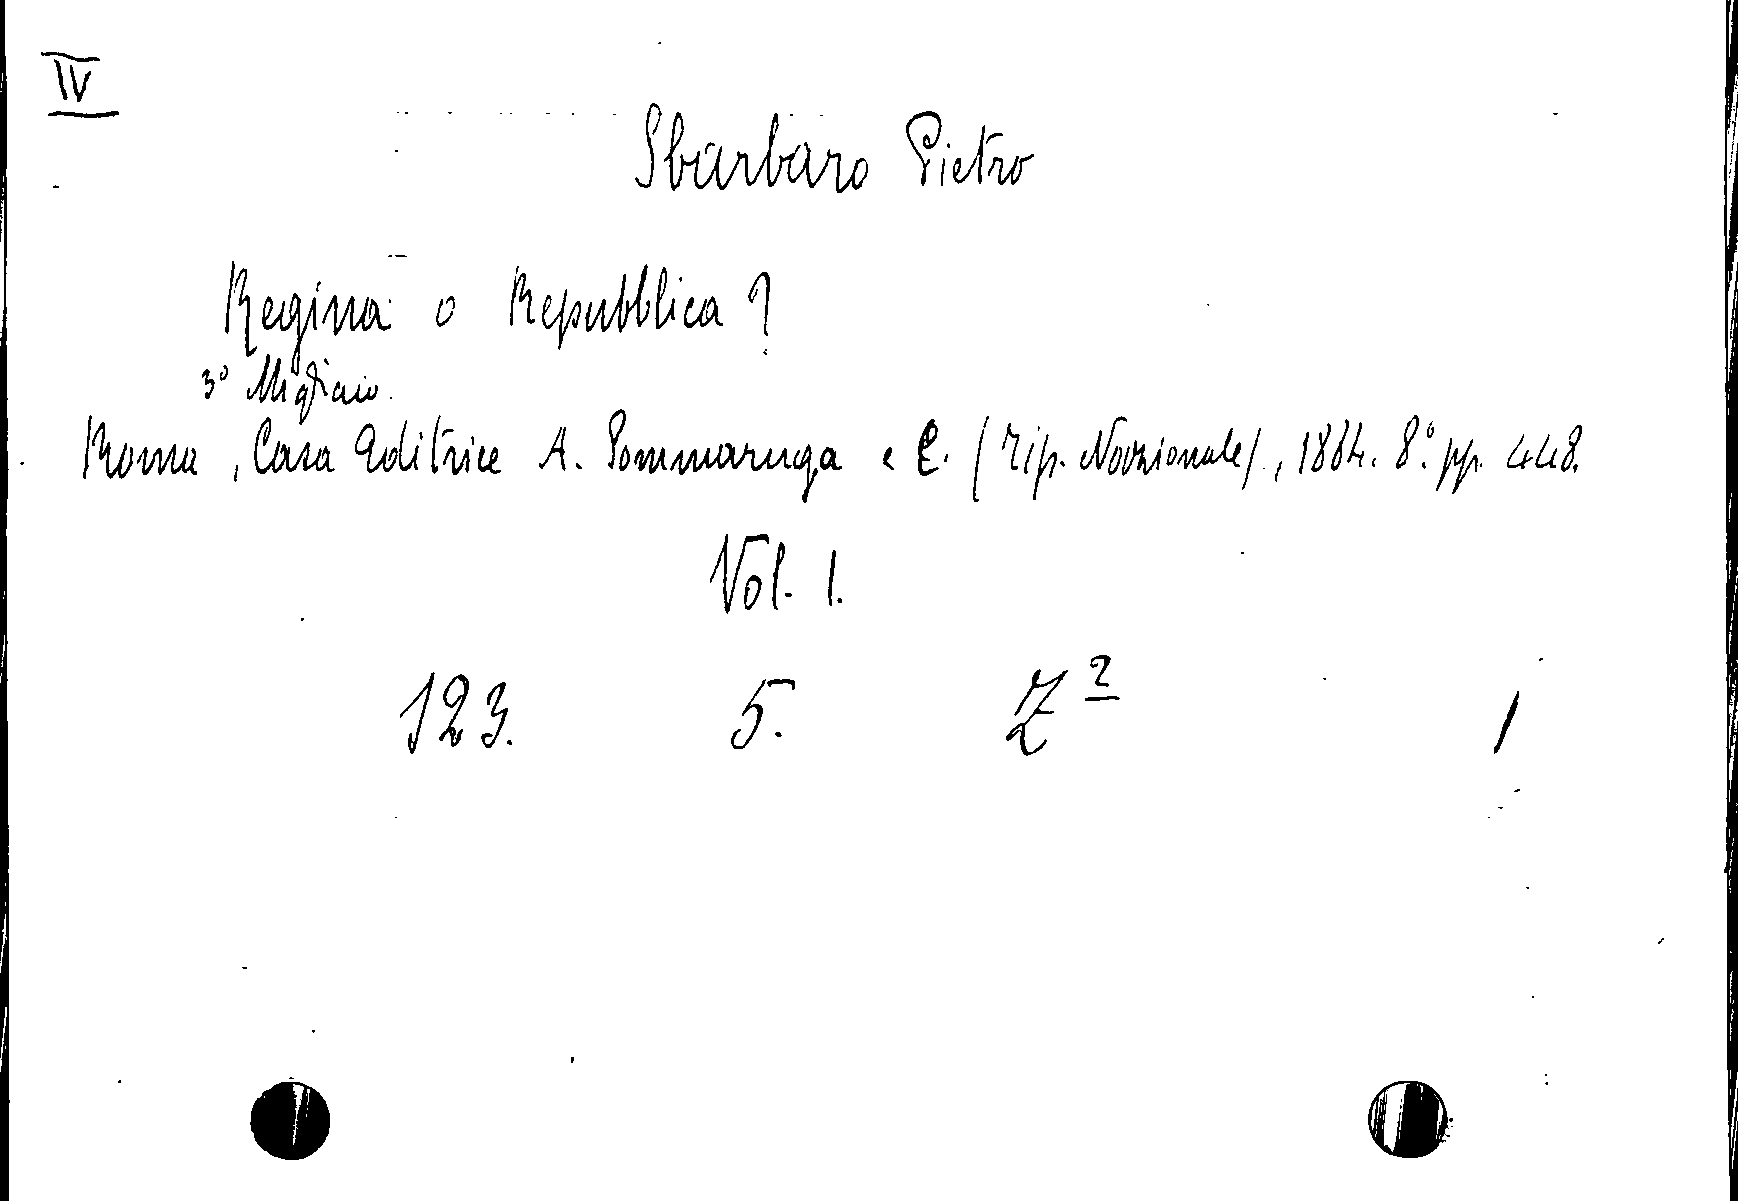 IV
Sbarbaro Pietro
Regina o Repubblica?
3º Migliaio.
Roma, Casa Editrice A. Sommaruga e C. (Tip. Nazionale), 1884. 8.º pp. 448.
Vol. 1.
123. 5. Z 2 1